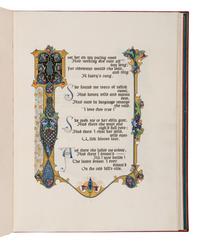 I set her on my pacing steed
And nothing else saw all day long
For sideways would she lean, and sing
A faery's song.
She found me roots of relish sweet,
And honey wild and manna dew,
And sure in language strange she said,
I love thee true!
She took me to her elfin grot,
And there she wept and sighed full sore;
And there I shut her wild, wild eyes
With kisses four.
And there she lulled me asleep,
And there I dream'd—
Ah! woe betide!
The latest dream I ever dream'd
On the cold hill's side.